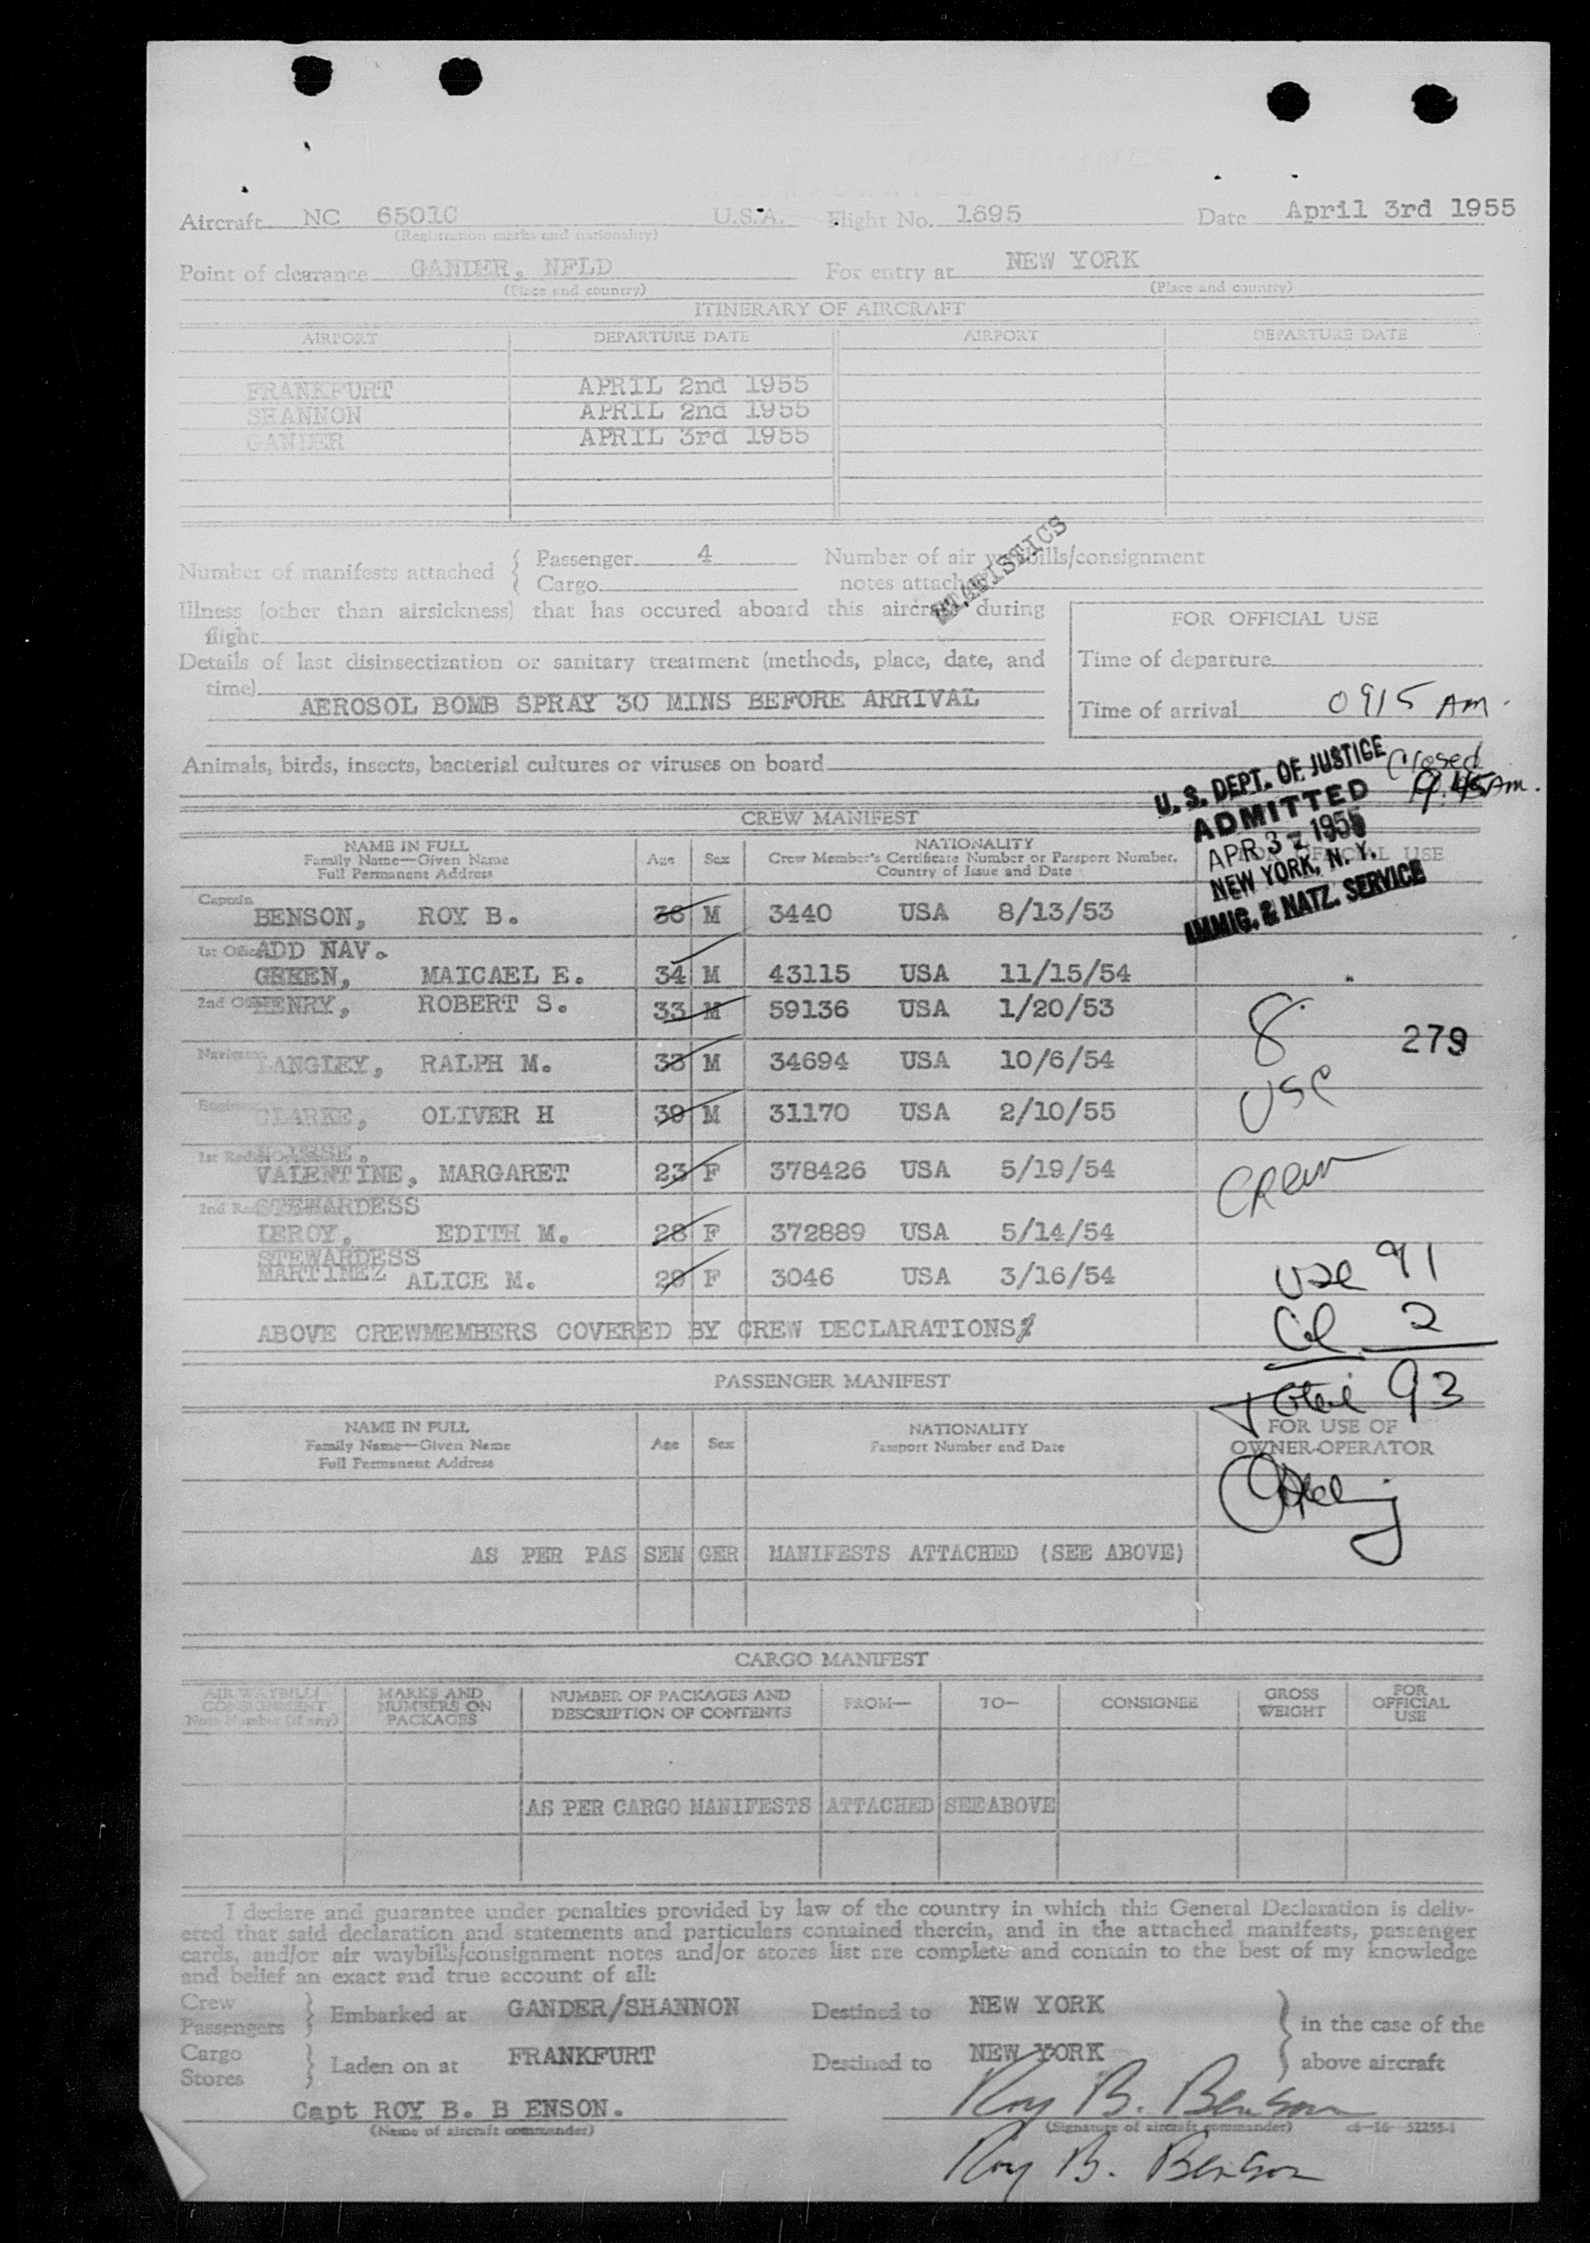 Aircraft NC 6501C U.S.A. Flight No. 1695 Date April 3rd 1955
(Registration marks and nationality)
Point of clearance GANDER, NFLD For entry at NEW YORK
(Place and country) (Place and country)
ITINERARY OF AIRCRAFT
AIRPORT DEPARTURE DATE AIRPORT DEPARTURE DATE
FRANKFURT APRIL 2nd 1955
SHANNON APRIL 2nd 1955
GANDER APRIL 3rd 1955
Number of manifests attached { Passenger 4 Number of air waybills/consignment
Cargo notes attached
STATISTICS
Illness (other than airsickness) that has occured aboard this aircraft during
flight
FOR OFFICIAL USE
Details of last disinsectization or sanitary treatment (methods, place, date, and
time)
Time of departure
AEROSOL BOMB SPRAY 30 MINS BEFORE ARRIVAL
Time of arrival 0915 AM.
Animals, birds, insects, bacterial cultures or viruses on board
Closed
9.45 AM.
U. S. DEPT. OF JUSTICE
ADMITTED
APR 3 - 1955
NEW YORK, N. Y.
IMMIG. & NATZ. SERVICE
CREW MANIFEST
NAME IN FULL
Family Name—Given Name
Full Permanent Address
Age Sex
NATIONALITY
Crew Member's Certificate Number or Passport Number,
Country of Issue and Date
FOR OFFICIAL USE
Captain
BENSON, ROY B. 36 M 3440 USA 8/13/53
1st Officer ADD NAV.
GREEN, MAICAEL E. 34 M 43115 USA 11/15/54
2nd Officer HENRY, ROBERT S. 33 M 59136 USA 1/20/53
8 279
Navigator LANGLEY, RALPH M. 33 M 34694 USA 10/6/54
USC
Engineer CLARKE, OLIVER H 39 M 31170 USA 2/10/55
1st Radio NURSE.
VALENTINE, MARGARET 23 F 378426 USA 5/19/54
Crew
2nd Radio STEWARDESS
LEROY, EDITH M. 28 F 372889 USA 5/14/54
STEWARDESS
MARTINEZ ALICE M. 29 F 3046 USA 3/16/54
USC 91
ABOVE CREWMEMBERS COVERED BY CREW DECLARATIONS
2
Total 93
PASSENGER MANIFEST
NAME IN FULL
Family Name—Given Name
Full Permanent Address
Age Sex
NATIONALITY
Passport Number and Date
FOR USE OF
OWNER-OPERATOR
AS PER PAS SEN GER MANIFESTS ATTACHED (SEE ABOVE)
CARGO MANIFEST
AIR WAYBILL/
CONSIGNMENT
Note Number (if any)
MARKS AND
NUMBERS ON
PACKAGES
NUMBER OF PACKAGES AND
DESCRIPTION OF CONTENTS
FROM— TO— CONSIGNEE
GROSS
WEIGHT
FOR
OFFICIAL
USE
AS PER CARGO MANIFESTS ATTACHED SEE ABOVE
I declare and guarantee under penalties provided by law of the country in which this General Declaration is deliv-
ered that said declaration and statements and particulars contained therein, and in the attached manifests, passenger
cards, and/or air waybills/consignment notes and/or stores list are complete and contain to the best of my knowledge
and belief an exact and true account of all:
Crew
Passengers } Embarked at GANDER/SHANNON Destined to NEW YORK } in the case of the
Cargo
Stores } Laden on at FRANKFURT Destined to NEW YORK above aircraft
Capt ROY B. B ENSON. Roy B. Benson
(Name of aircraft commander) (Signature of aircraft commander) c6—16—52255-1
Roy B. Benson